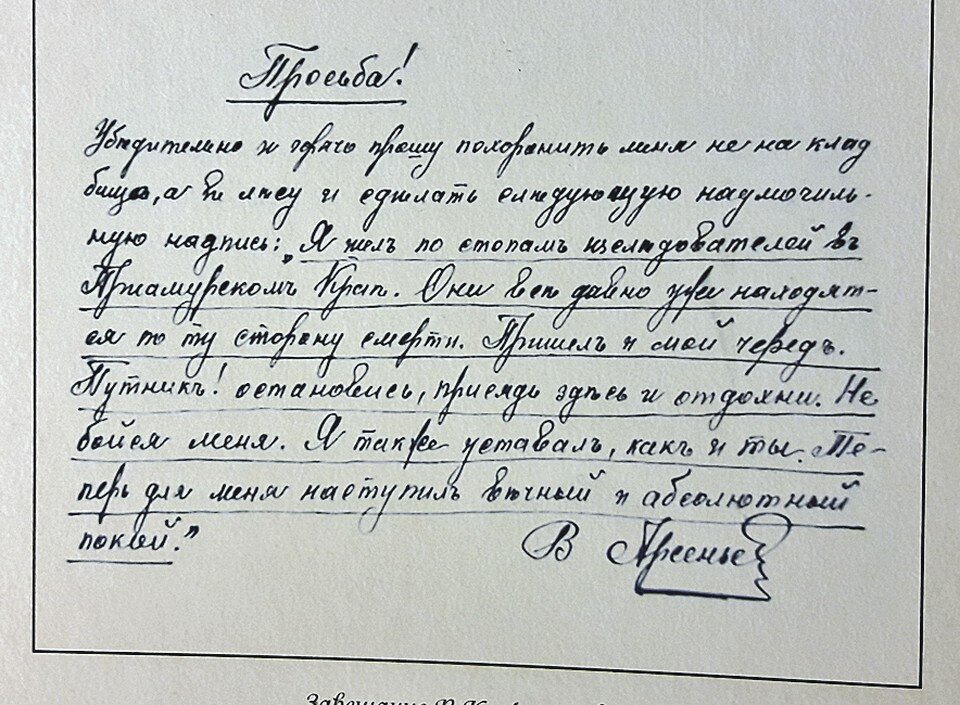 Просьба!
Убедительно и горячо прошу похоронить меня не на клад
бище, а в лѣсу и сдѣлать слѣдующую надмогиль-
ную надпись: „Я шелъ по стопамъ изслѣдователей въ
Приамурскомъ Краѣ. Они всѣ давно уже находят-
ся по ту сторону смерти. Пришелъ и мой чередъ.
Путникъ! остановись, присядь здѣсь и отдохни. Не
бойся меня. Я также уставалъ, какъ и ты. Те-
перь для меня наступилъ вѣчный и абсолютный
покой."
В Арсеньев
Завещание В.К.